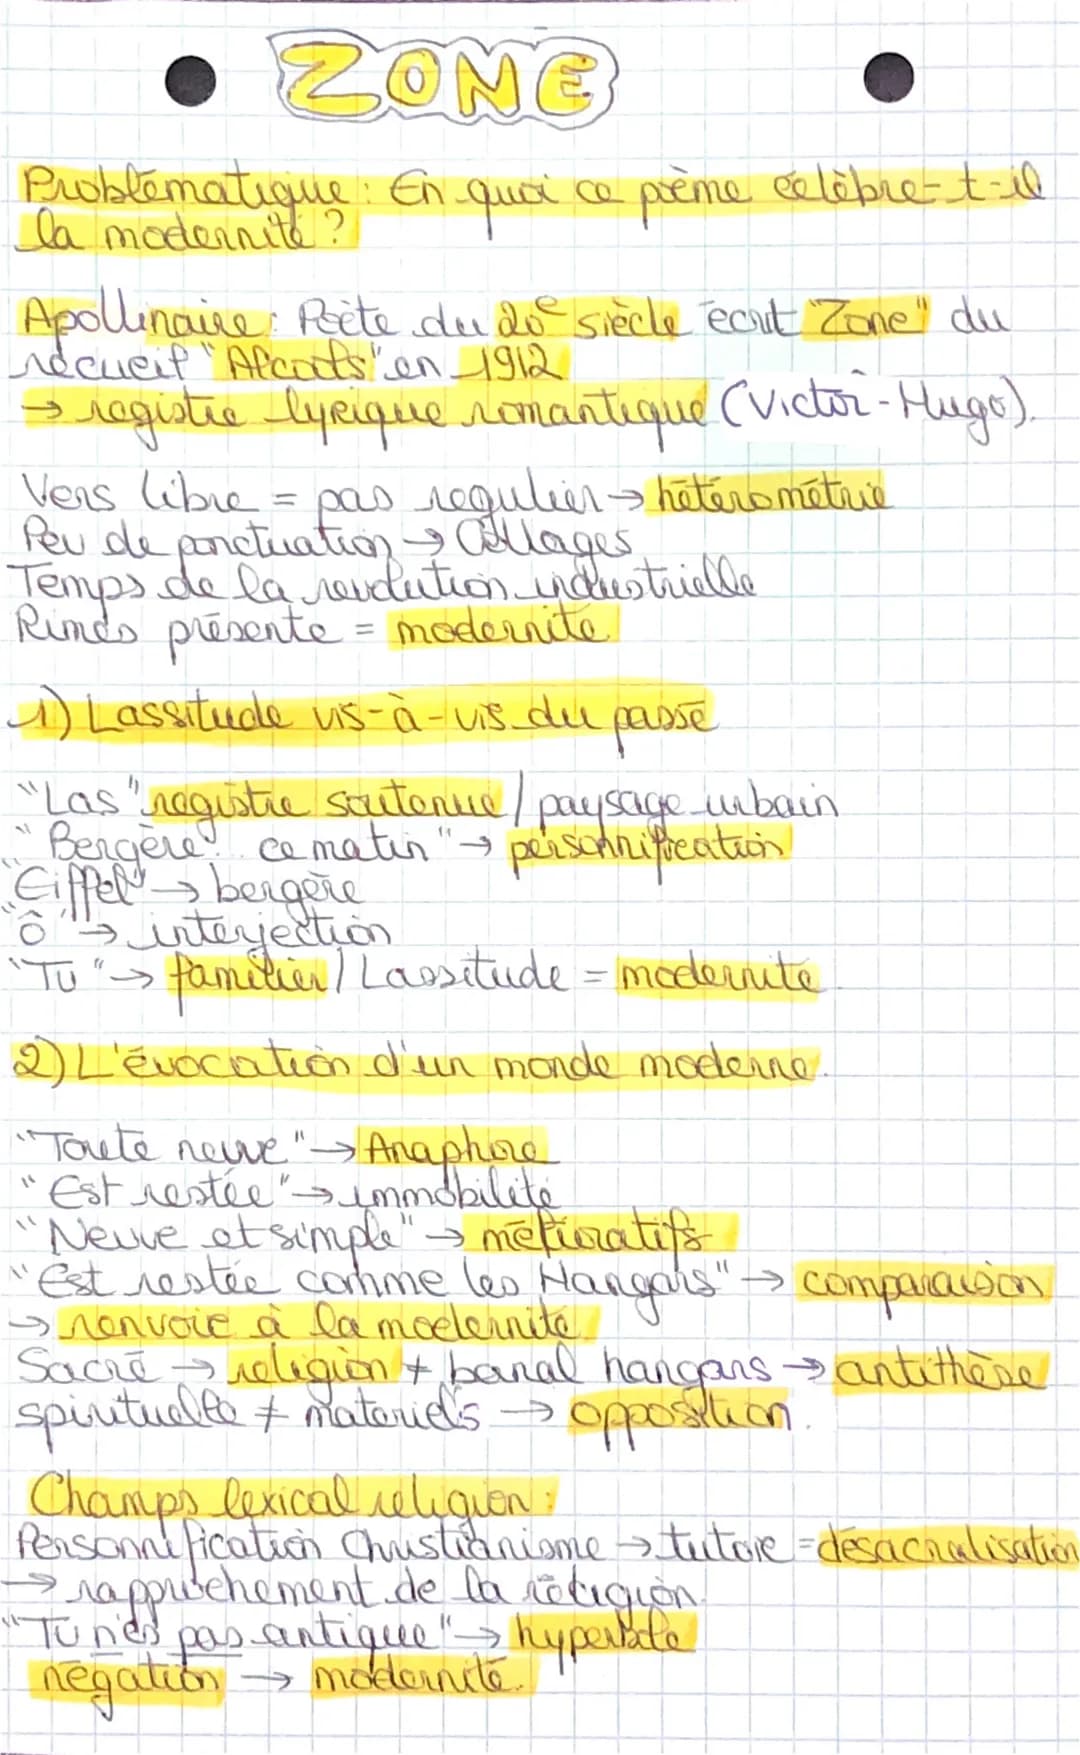 ZONE
Problématique : En quoi ce pœme célèbre-t-il
la modernité ?
Apollinaire : Poète du 20e siècle écrit "Zone" du
recueil "Alcools" en 1912
→ registre lyrique romantique (Victor-Hugo).
Vers libre = pas regulier → hétérométrie
Peu de ponctuation → Collages
Temps de la revolution industrielle
Rimes présente = modernité
1) Lassitude vis-à-vis du passé
"Las" registre soutenue / paysage urbain
"Bergère... ce matin" → personnification
"Eiffel" → bergère
"ô" → interjection
"Tu" → familier / Lassitude = modernité.
2) L'évocation d'un monde moderne.
"Toute neuve" → Anaphore
"Est restée" → immobilité
"Neuve et simple" → mélioratifs
"Est restée comme les Hangars" → comparaison
→ renvoie à la modernité.
Sacré → religion ≠ banal hangars → antithèse
spirituelle ≠ matériels → opposition.
Champs lexical religion :
Personnification Christianisme → tutoie = désacralisation
→ rapprochement de la religion.
"Tu n'es pas antique" → hyperbole
négation → modernité.